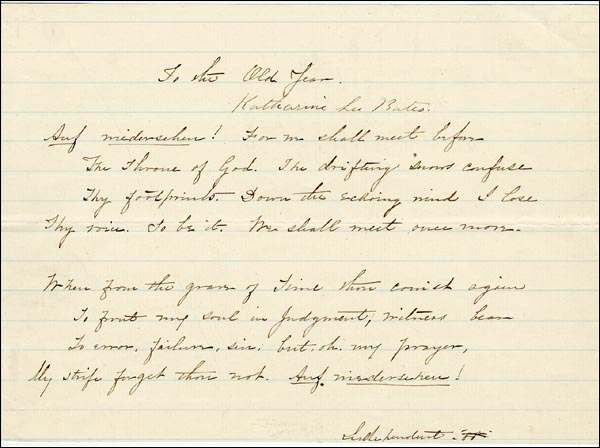 To the Old Year.
Katharine Lee Bates.
Auf wiedersehen! For we shall meet before
The Throne of God. The drifting snows confuse
Thy footprints. Down the echoing wind I lose
Thy voice. So be it. We shall meet once more.
When from the grave of Time thou comest again
To front my soul in Judgment, witness bear
To error, failure, sin; but, oh, my prayer,
My strife forget thou not. Auf wiedersehen!
Independent